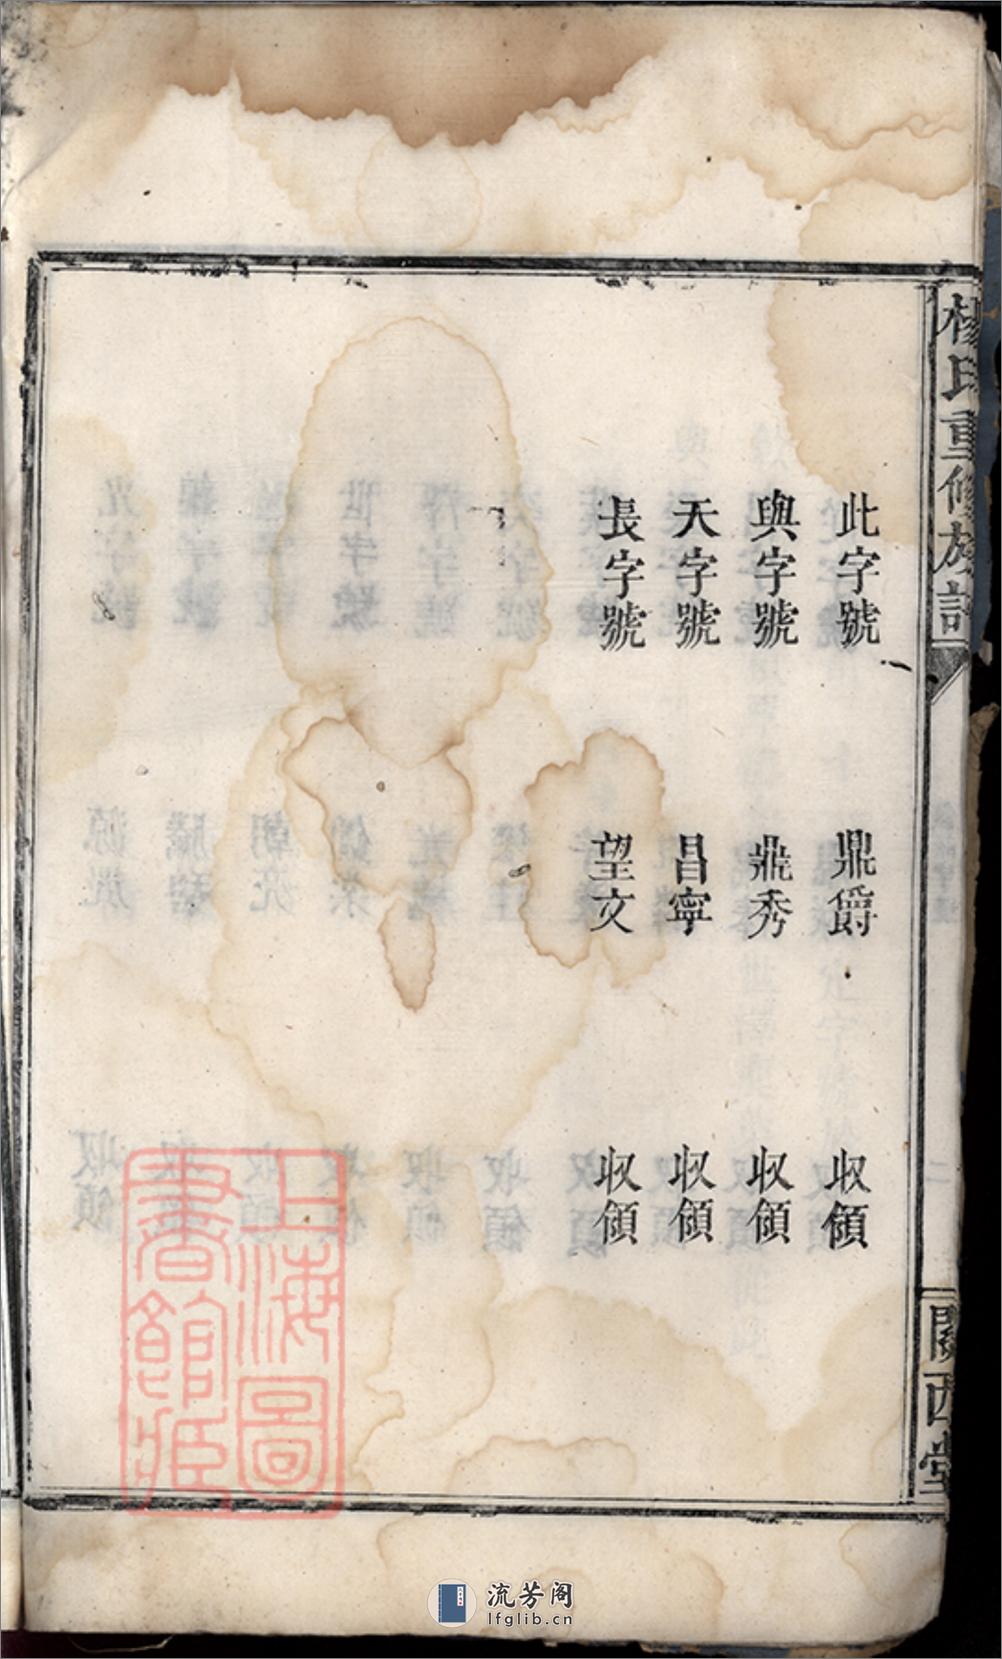 楊氏重修族譜
二
關西堂
此字號 鼎爵 收領
與字號 鼎秀 收領
天字號 昌寧 收領
長字號 望文 收領
上海圖
書館藏
流芳阁
lfglib.cn